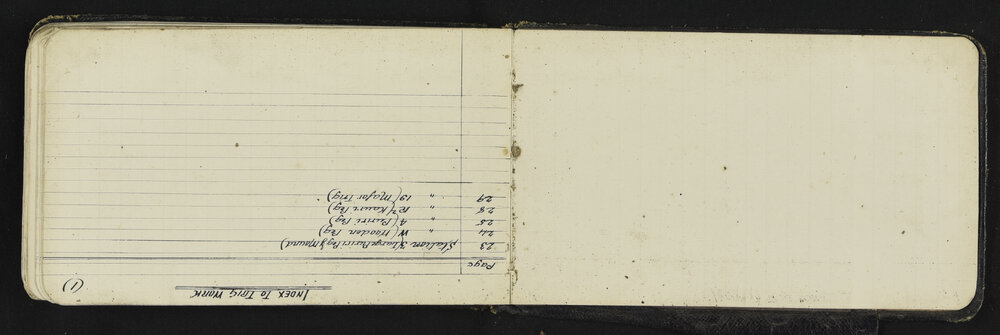 (1)
INDEX TO TRIG WORK
Page
23 Station 3 (Large Puriri Peg & Mound)
24 " W (Wooden Peg)
25 " A (Puriri Peg)
28 " (Kauri Peg)
29 " 19 (Major Trig)